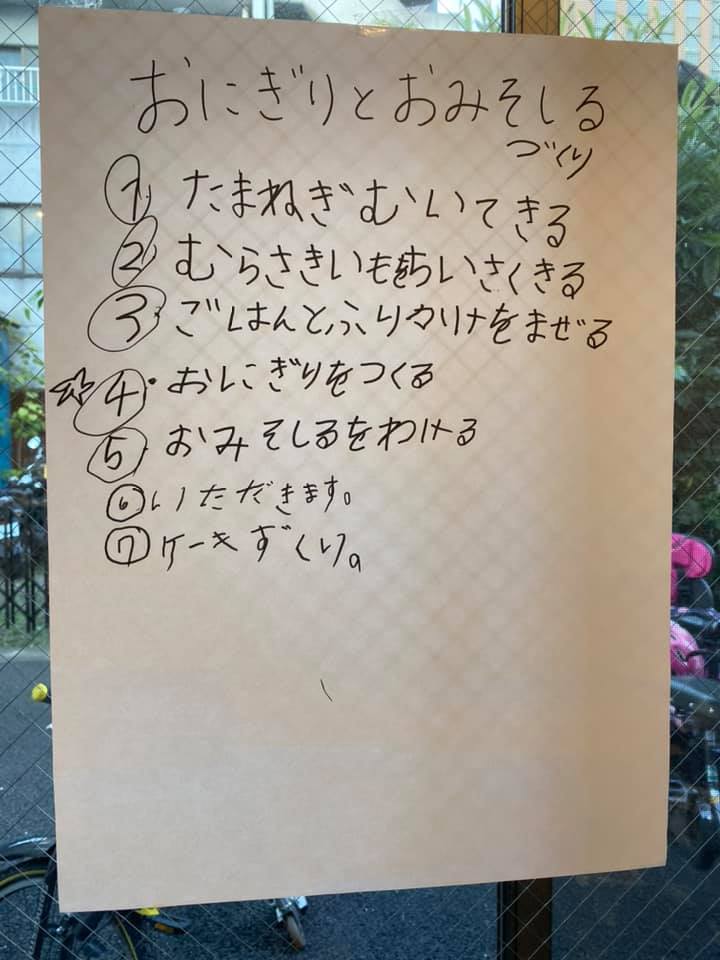 おにぎりとおみそしる
づくり
① たまねぎむいてきる
② むらさきいもをちいさくきる
③ ごはんとふりカリナをまぜる
☆④・おにぎりをつくる
⑤ おみそしるをわける
⑥ いただきます。
⑦ ケーキずくり。